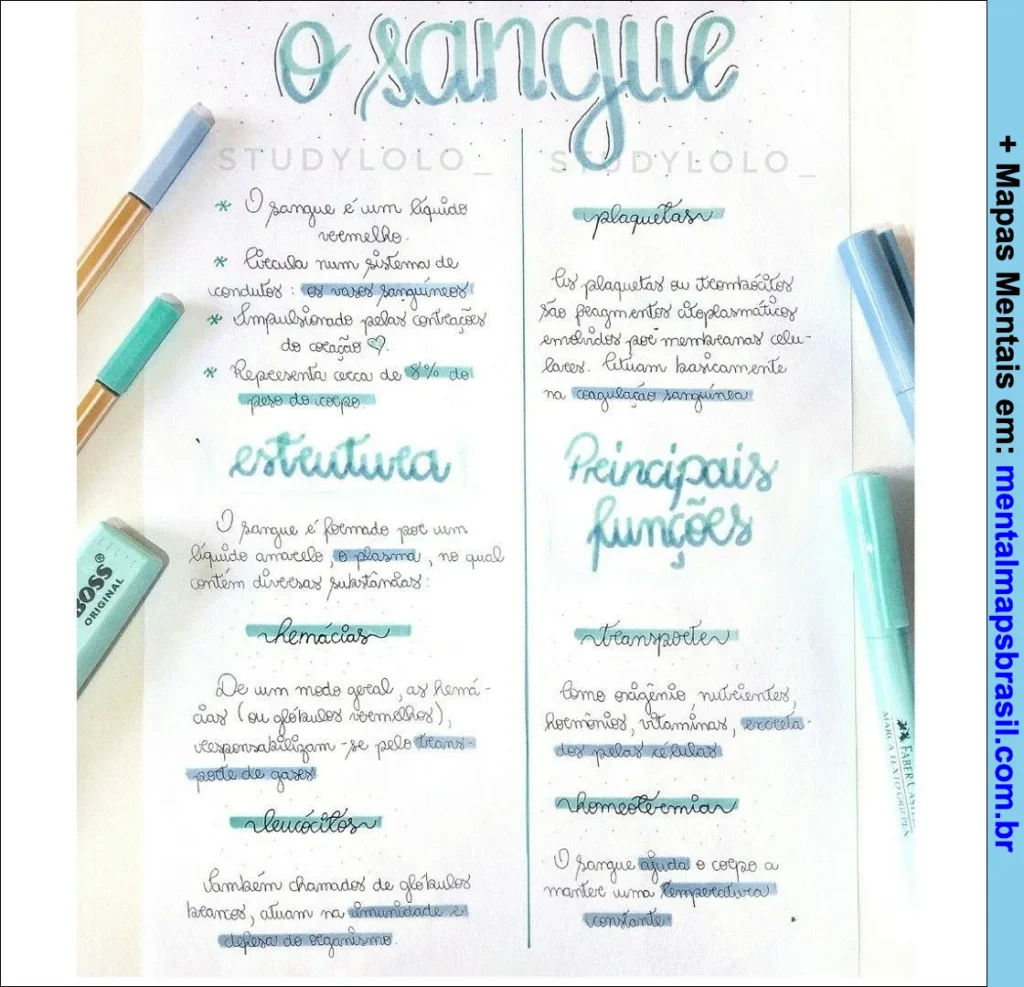 o sangue
STUDYLOLO_
* O sangue é um líquido
vermelho.
* Circula num sistema de
condutos: os vasos sanguíneos
* Impulsionado pelas contrações
do coração ♡.
* Representa cerca de 8% do
peso do corpo.
estrutura
O sangue é formado por um
líquido amarelo, o plasma, no qual
contém diversas substâncias:
hemácias
De um modo geral, as hemá-
cias (ou glóbulos vermelhos),
responsabilizam-se pelo trans-
porte de gases
leucócitos
Também chamados de glóbulos
brancos, atuam na imunidade e
defesa do organismo.
STUDYLOLO_
plaquetas
As plaquetas ou trombócitos
são fragmentos citoplasmáticos
envolvidos por membranas celu-
lares. Atuam basicamente
na coagulação sanguínea
Principais
funções
transporte
Como oxigênio, nutrientes,
hormônios, vitaminas, excreta-
dos pelas células
homeotermia
O sangue ajuda o corpo a
manter uma temperatura
constante
BOSS®
ORIGINAL
FABER-CASTELL
MARCA TEXTO GRIP PEN
+ Mapas Mentais em: mentalmapsbrasil.com.br